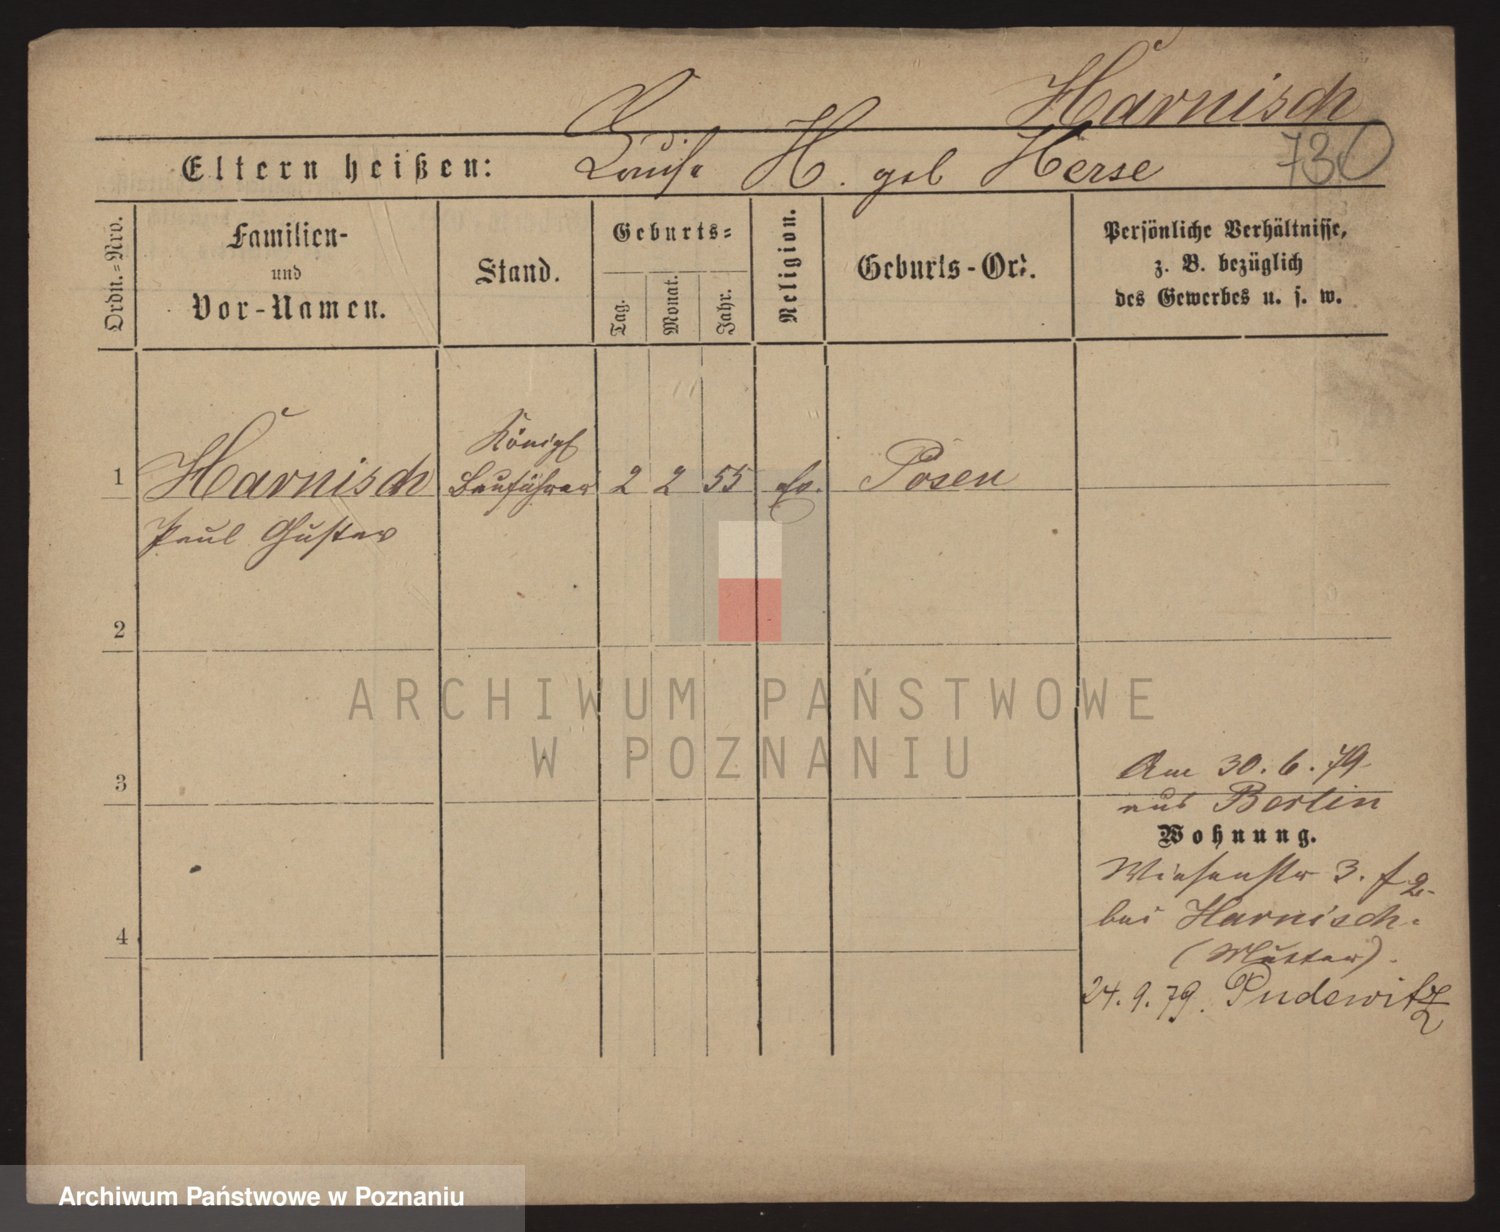 Harnisch
730
Eltern heißen: Louise H. geb Herse
Ordn.=Nro.
Familien- und Vor-Namen.
Stand.
Geburts=
Tag.
Monat.
Jahr.
Religion.
Geburts-Ort.
Persönliche Verhältnisse,
z. B. bezüglich
des Gewerbes u. s. w.
Königl
1 Harnisch Bauführer 2 2 55 ev. Posen
Paul Gustav
2
ARCHIWUM PAŃSTWOWE
W POZNANIU
Am 30. 6. 79
3
aus Berlin
Wohnung.
Wiesenstr 3.
bei Harnisch.
4
(Mutter).
24. 9. 79. Pudewitz
Archiwum Państwowe w Poznaniu